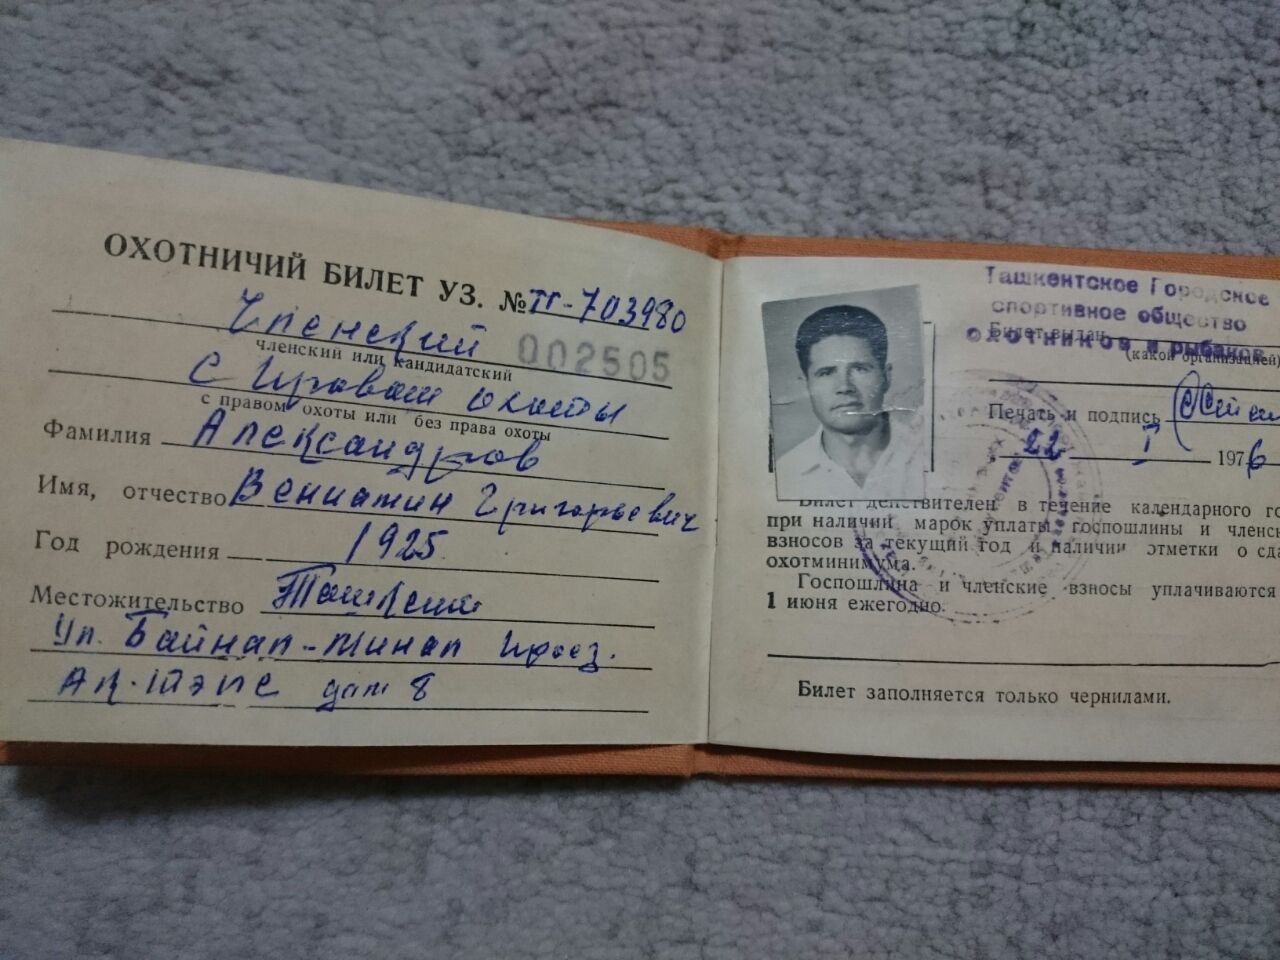 ОХОТНИЧИЙ БИЛЕТ УЗ. № ТГ-703980
Членский 002505
членский или кандидатский
с правом охоты
с правом охоты или без права охоты
Фамилия Александров
Имя, отчество Вениамин Григорьевич
Год рождения 1925
Местожительство Ташкент
Ул. Байнал-Минал проез.
Ак-Тэпе дом 8
Ташкентское Городское
спортивное общество
охотников и рыбаков
Билет выдан
(какой организацией)
Печать и подпись
22 I 1976
Билет действителен в течение календарного го
при наличии марок уплаты госпошлины и членск
взносов за текущий год и наличии отметки о сда
охотминимума.
Госпошлина и членские взносы уплачиваются
1 июня ежегодно.
Билет заполняется только чернилами.